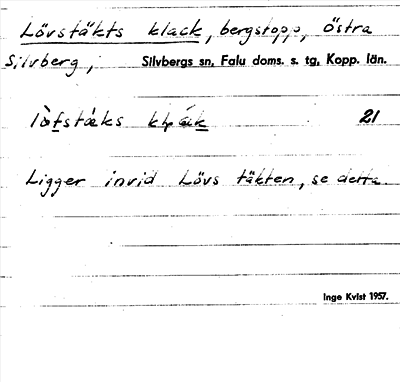 Lövstäkts klack, bergstopp, Östra
Silvberg, Silvbergs sn, Falu doms. s. tg, Kopp. län.
21
Ligger invid Lövs täkten, se detta.
Inge Kvist 1957.